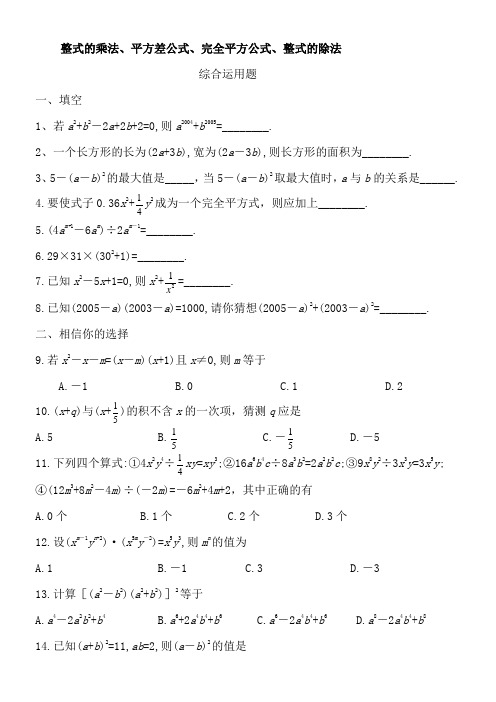 整式的乘法、平方差公式、完全平方公式、整式的除法
综合运用题
一、填空
1、若a²+b²－2a+2b+2=0,则a²⁰⁰⁴+b²⁰⁰⁵=________.
2、一个长方形的长为(2a+3b),宽为(2a－3b),则长方形的面积为________.
3、5－(a－b)²的最大值是_____,当5－(a－b)²取最大值时,a与b的关系是______.
4.要使式子0.36x²+1/4y²成为一个完全平方式，则应加上________.
5.(4aᵐ⁺¹－6aᵐ)÷2aᵐ⁻¹=________.
6.29×31×(30²+1)=________.
7.已知x²－5x+1=0,则x²+1/x²=________.
8.已知(2005－a)(2003－a)=1000,请你猜想(2005－a)²+(2003－a)²=________.
二、相信你的选择
9.若x²－x－m=(x－m)(x+1)且x≠0,则m等于
A.－1 B.0 C.1 D.2
10.(x+q)与(x+1/5)的积不含x的一次项，猜测q应是
A.5 B.1/5 C.－1/5 D.－5
11.下列四个算式:①4x²y⁴÷1/4xy=xy³;②16a⁶b⁴c÷8a³b²=2a²b²c;③9x⁸y²÷3x³y=3x⁵y;
④(12m³+8m²－4m)÷(－2m)=－6m²+4m+2，其中正确的有
A.0个 B.1个 C.2个 D.3个
12.设(xᵐ⁻¹yⁿ⁺²)·(x⁵ᵐy⁻²)=x⁵y³,则mⁿ的值为
A.1 B.－1 C.3 D.－3
13.计算［(a²－b²)(a²+b²)］²等于
A.a⁴－2a²b²+b⁴ B.a⁶+2a⁴b⁴+b⁶ C.a⁶－2a⁴b⁴+b⁶ D.a⁸－2a⁴b⁴+b⁸
14.已知(a+b)²=11,ab=2,则(a－b)²的值是